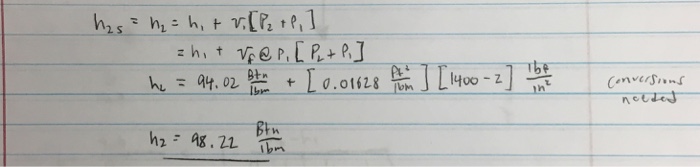 h₂ₛ = h₂ = h₁ + v₁[P₂ + P₁]
= h₁ + v_f @ P₁ [P₂ + P₁]
h₂ = 94.02 Btu/lbm + [0.01628 ft³/lbm] [1400 - 2] lbf/in² conversions needed
h₂ = 98.22 Btu/lbm